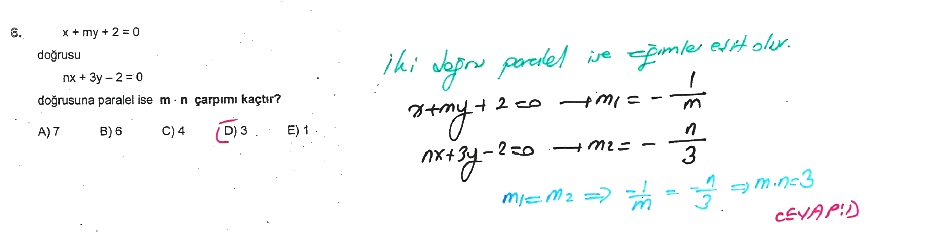 6. x + my + 2 = 0
doğrusu
nx + 3y – 2 = 0
doğrusuna paralel ise m · n çarpımı kaçtır?
A) 7 B) 6 C) 4 D) 3 E) 1
iki doğru paralel ise eğimler eşit olur.
x+my+2=0 → m₁ = - 1/m
nx+3y-2=0 → m₂ = - n/3
m₁=m₂ ⇒ -1/m = -n/3 ⇒ m.n=3
CEVAP:D